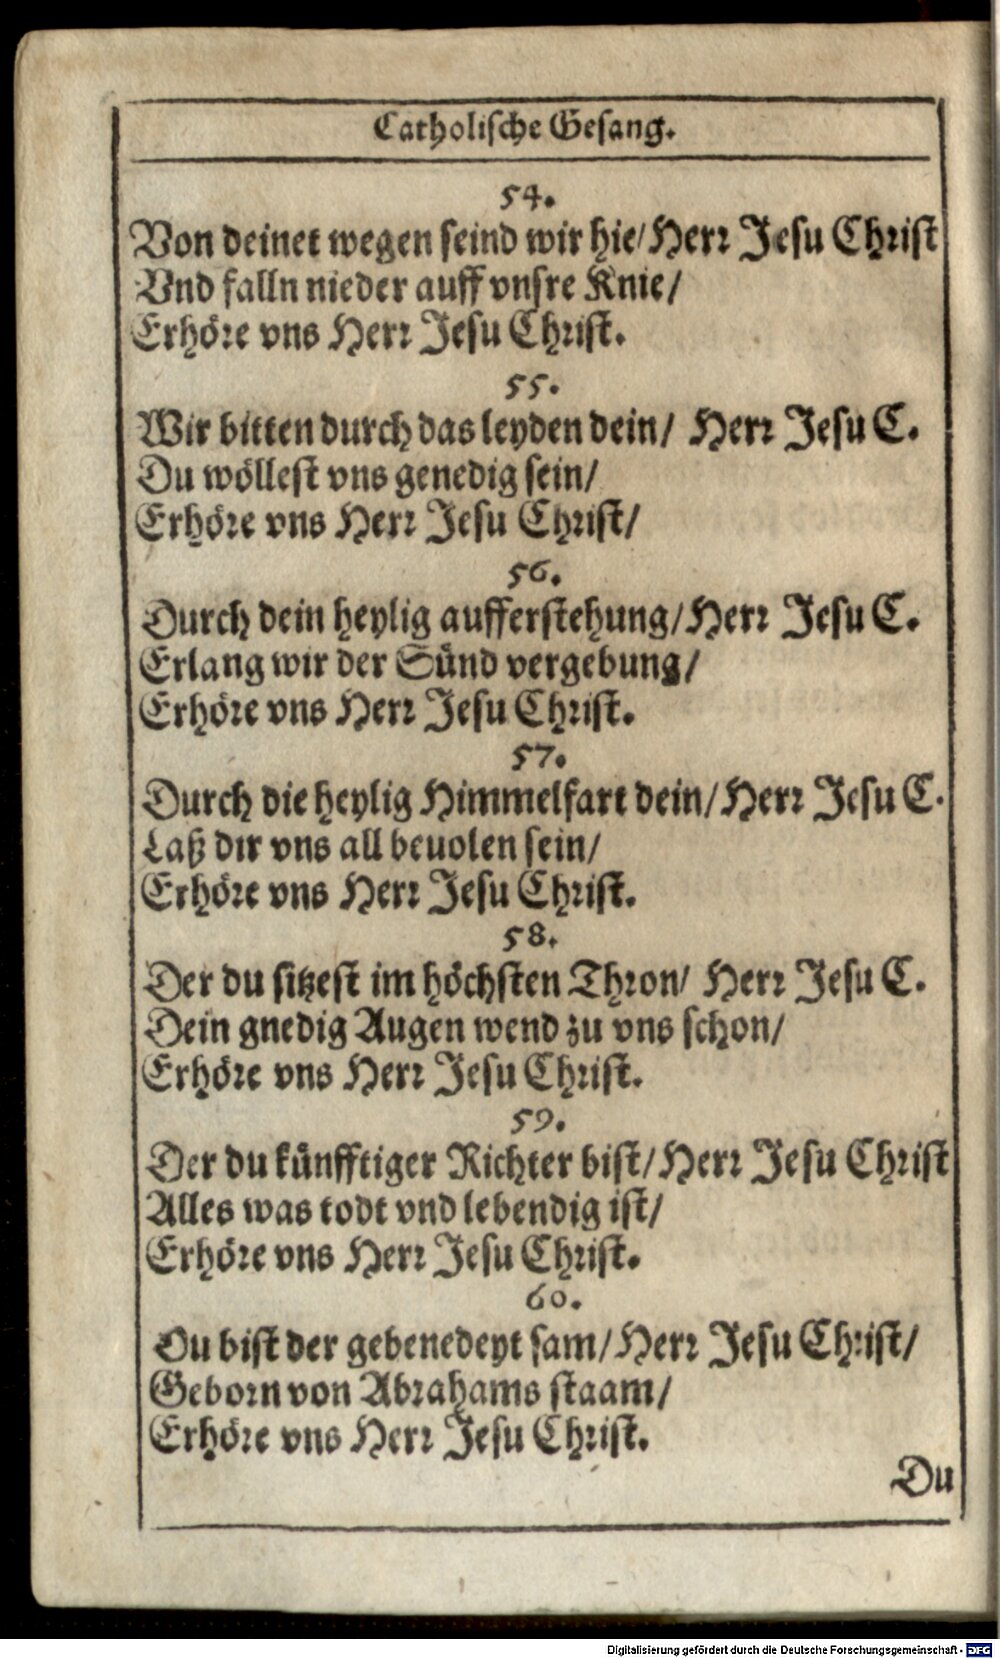 Catholische Gesang.
54.
Von deinet wegen seind wir hie/ Herr Jesu Christ
Vnd falln nieder auff vnsre Knie/
Erhöre vns Herr Jesu Christ.
55.
Wir bitten durch das leyden dein/ Herr Jesu C.
Du wöllest vns genedig sein/
Erhöre vns Herr Jesu Christ/
56.
Durch dein heylig aufferstehung/ Herr Jesu C.
Erlang wir der Sünd vergebung/
Erhöre vns Herr Jesu Christ.
57.
Durch die heylig Himmelfart dein/ Herr Jesu C.
Laß dir vns all beuolen sein/
Erhöre vns Herr Jesu Christ.
58.
Der du sitzest im höchsten Thron/ Herr Jesu C.
Dein gnedig Augen wend zu vns schon/
Erhöre vns Herr Jesu Christ.
59.
Der du künfftiger Richter bist/ Herr Jesu Christ
Alles was todt vnd lebendig ist/
Erhöre vns Herr Jesu Christ.
60.
Du bist der gebenedeyt sam/ Herr Jesu Christ/
Geborn von Abrahams staam/
Erhöre vns Herr Jesu Christ.
Du
Digitalisierung gefördert durch die Deutsche Forschungsgemeinschaft - DFG